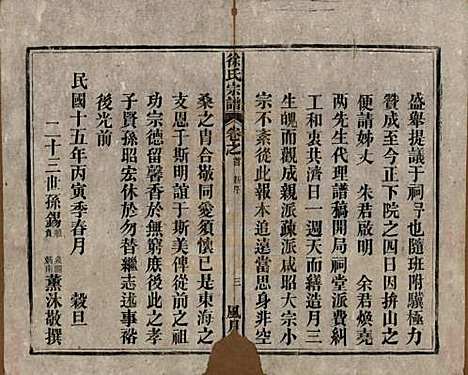 盛舉提議于祠予也隨班附驥極力
贊成至今正下院之四日因拚山之
便請姊丈 朱君啟明 余君煥堯
两先生代理譜稿開局祠堂派費鳩
工和衷共濟日一週天而繕造月三
生魄而觀成親派疏派咸昭大宗小
宗不紊從此報本追遠當思身非空
徐氏宗譜 卷之首 新序 三
桑之冑合敬同愛須懷已是東海之
支恩于斯明誼于斯美俾從前之祖
功宗德留馨香於無窮庶後此之孝
子賢孫昭宏休於勿替繼志述事裕
後光前
民國十五年丙寅季春月 穀旦
二十三世孫錫 薰沐敬撰